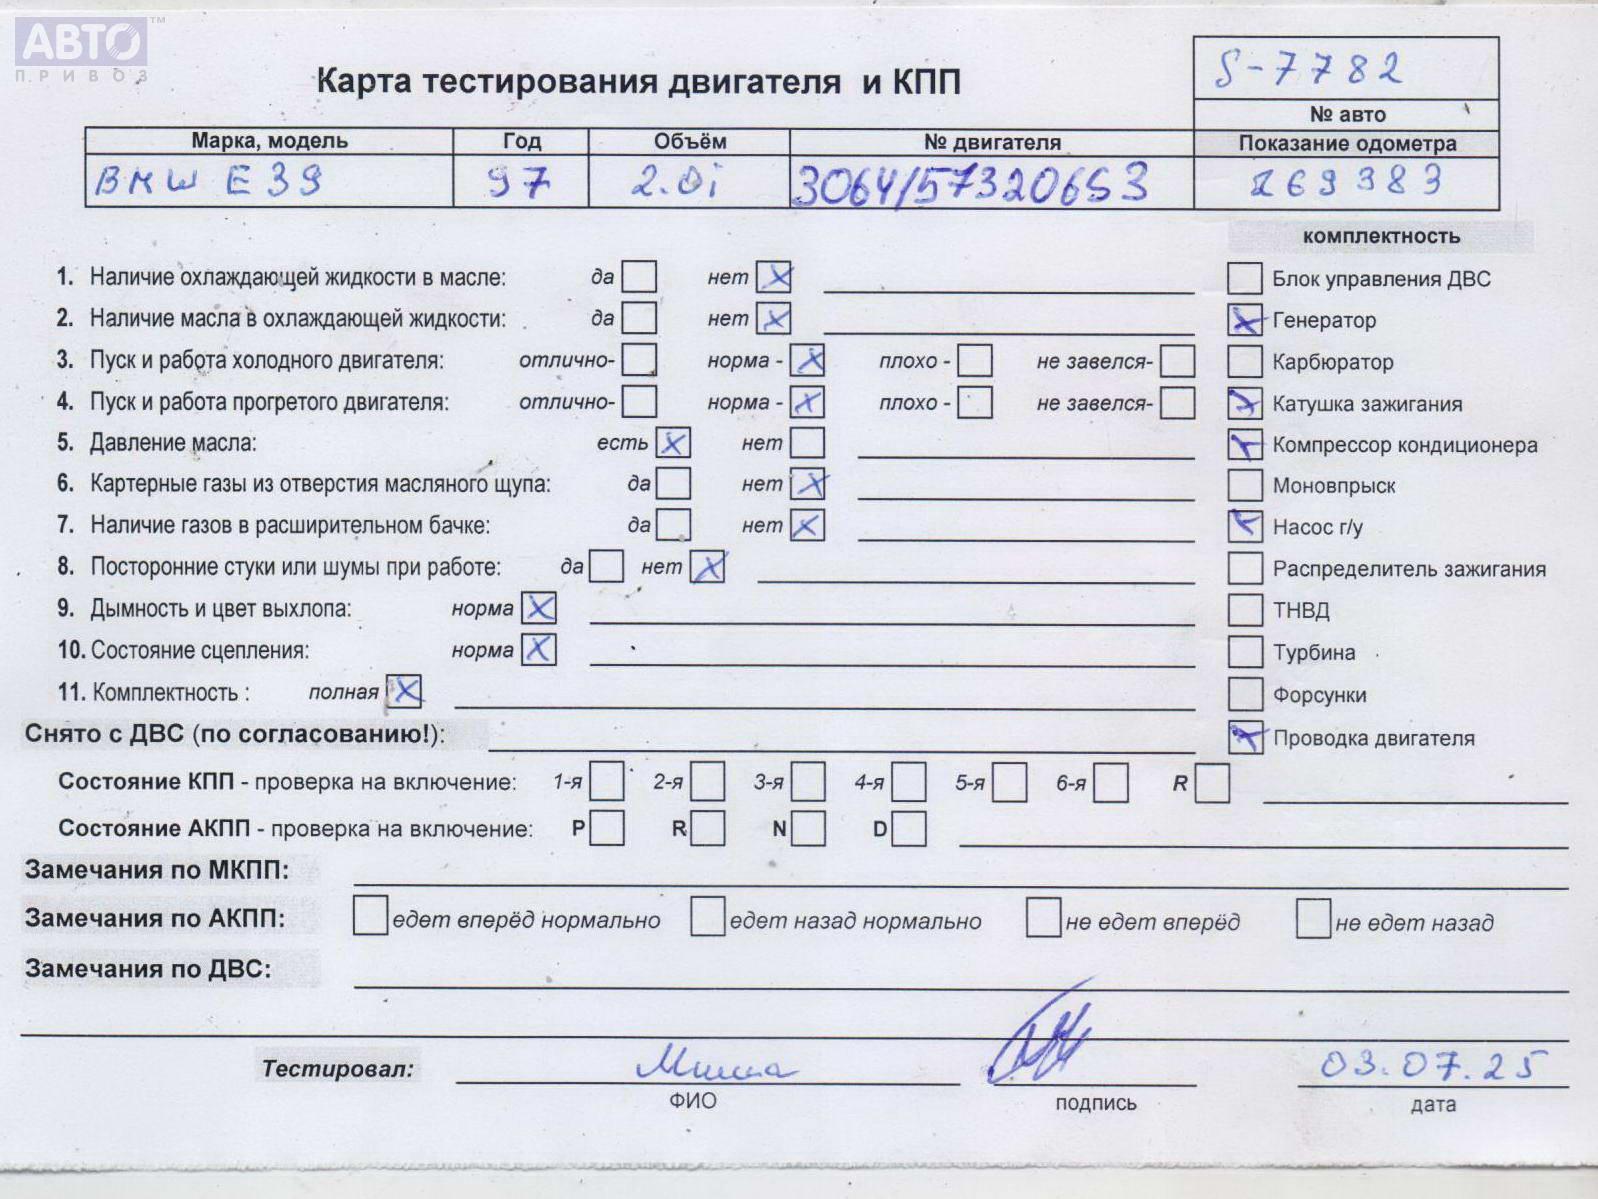 АВТО™
ПРИВОЗ
Карта тестирования двигателя и КПП
S-7782
№ авто
Марка, модель Год Объём № двигателя Показание одометра
BMW E39 97 2.0i 3064/57320653 269383
комплектность
1. Наличие охлаждающей жидкости в масле: да нет X Блок управления ДВС
2. Наличие масла в охлаждающей жидкости: да нет X X Генератор
3. Пуск и работа холодного двигателя: отлично- норма - X плохо - не завелся- Карбюратор
4. Пуск и работа прогретого двигателя: отлично- норма - X плохо - не завелся- X Катушка зажигания
5. Давление масла: есть X нет X Компрессор кондиционера
6. Картерные газы из отверстия масляного щупа: да нет X Моновпрыск
7. Наличие газов в расширительном бачке: да нет X X Насос г/у
8. Посторонние стуки или шумы при работе: да нет X Распределитель зажигания
9. Дымность и цвет выхлопа: норма X ТНВД
10. Состояние сцепления: норма X Турбина
11. Комплектность : полная X Форсунки
Снято с ДВС (по согласованию!): X Проводка двигателя
Состояние КПП - проверка на включение: 1-я 2-я 3-я 4-я 5-я 6-я R
Состояние АКПП - проверка на включение: P R N D
Замечания по МКПП:
Замечания по АКПП: едет вперёд нормально едет назад нормально не едет вперёд не едет назад
Замечания по ДВС:
Тестировал: Миша 03.07.25
ФИО подпись дата